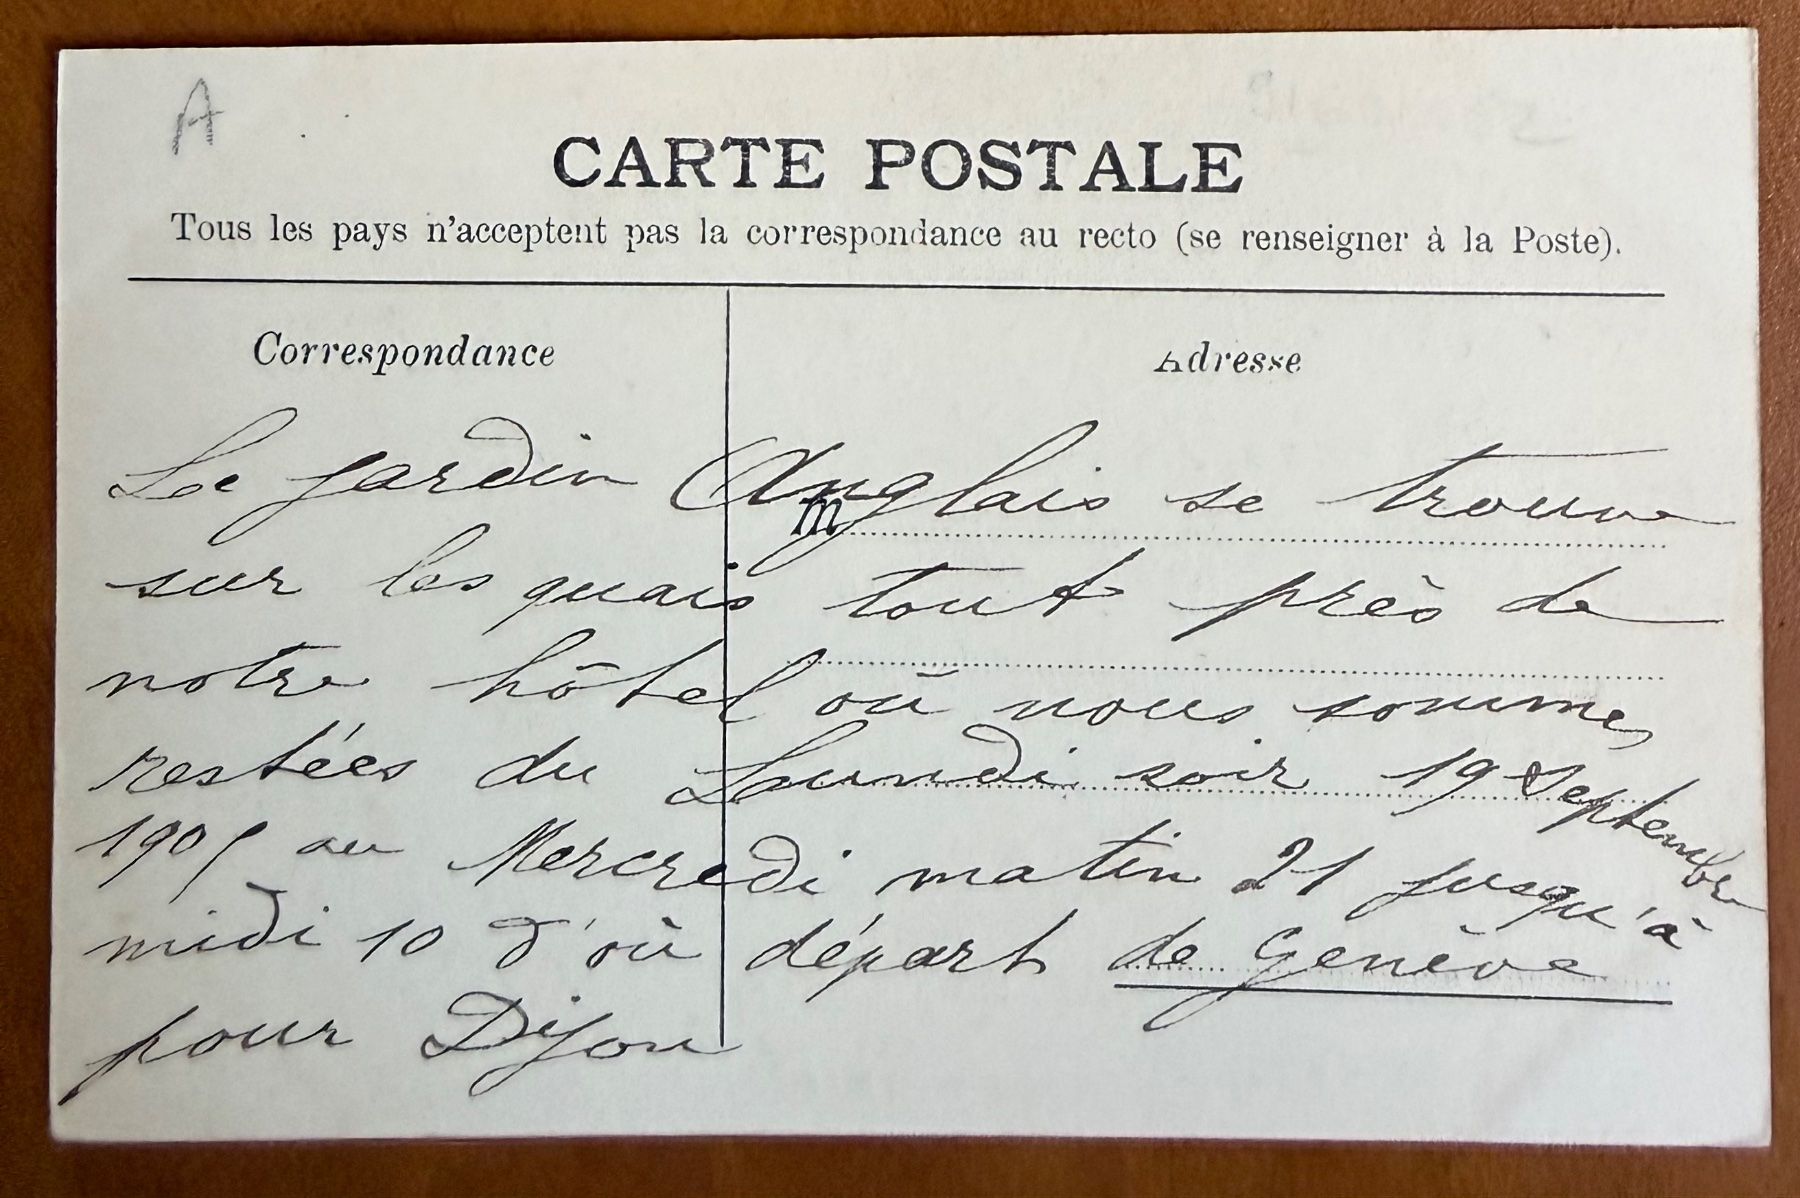 A
CARTE POSTALE
Tous les pays n'acceptent pas la correspondance au recto (se renseigner à la Poste).
Correspondance
Adresse
M
Le jardin Anglais se trouve
sur les quais tout près de
notre hôtel où nous sommes
restées du Lundi soir 19 Septembre
1905 au Mercredi matin 21 jusqu'à
midi 10 d'où départ de Genève
pour Dijon